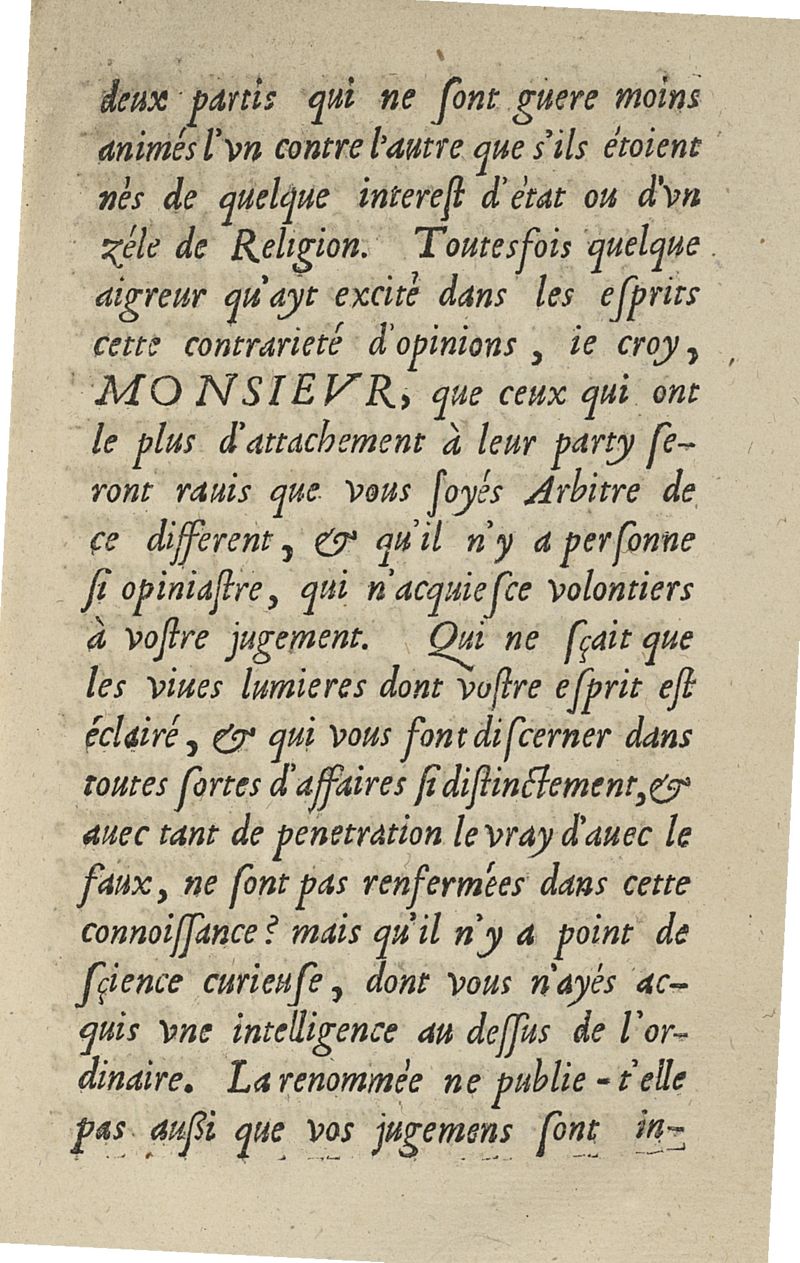 deux partis qui ne ſont guere moins
animés l'vn contre l'autre que s'ils étoient
nès de quelque intereſt d'ètat ou d'vn
zéle de Religion. Toutesfois quelque
aigreur qu'ayt excitè dans les eſprits
cette contrarieté d'opinions, ie croy,
MONSIEVR, que ceux qui ont
le plus d'attachement à leur party ſe-
ront rauis que vous ſoyés Arbitre de
ce different, & qu'il n'y a perſonne
ſi opiniaſtre, qui n'acquieſce volontiers
à voſtre jugement. Qui ne ſçait que
les viues lumieres dont voſtre eſprit eſt
éclairé, & qui vous font diſcerner dans
toutes ſortes d'affaires ſi diſtinctement, &
auec tant de penetration le vray d'auec le
faux, ne ſont pas renfermées dans cette
connoiſſance? mais qu'il n'y a point de
ſçience curieuſe, dont vous n'ayés ac-
quis vne intelligence au deſſus de l'or-
dinaire. La renommée ne publie-t'elle
pas außi que vos jugemens ſont in-